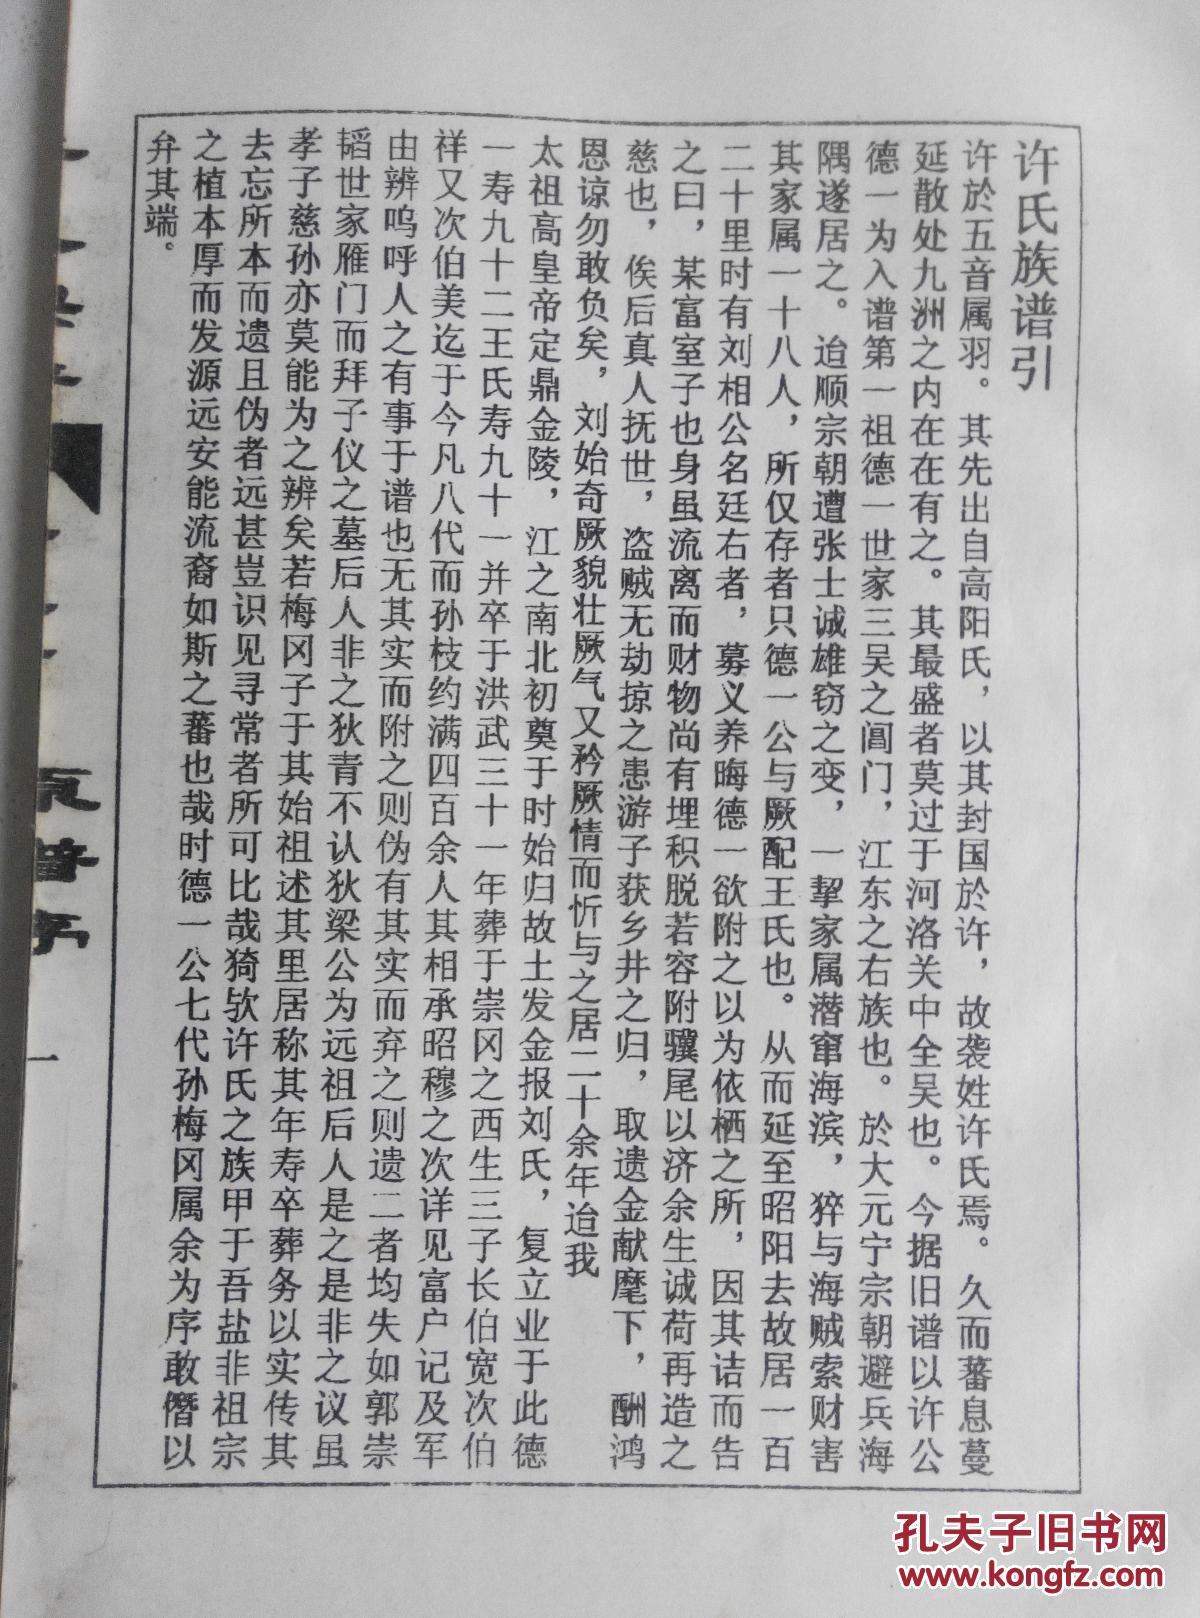 许氏族谱引
许於五音属羽。其先出自高阳氏，以其封国於许，故袭姓许氏焉。久而蕃息蔓
延散处九洲之内在在有之。其最盛者莫过于河洛关中全吴也。今据旧谱以许公
德一为入谱第一祖德一世家三吴之阊门，江东之右族也。於大元宁宗朝避兵海
隅遂居之。迨顺宗朝遭张士诚雄窃之变，一挈家属潜窜海滨，猝与海贼索财害
其家属一十八人，所仅存者只德一公与厥配王氏也。从而延至昭阳去故居一百
二十里时有刘相公名廷右者，募义养晦德一欲附之以为依栖之所，因其诘而告
之曰，某富室子也身虽流离而财物尚有埋积脱若容附骥尾以济余生诚荷再造之
慈也，俟后真人抚世，盗贼无劫掠之患游子获乡井之归，取遗金献麾下，酬鸿
恩谅勿敢负矣，刘始奇厥貌壮厥气又矜厥情而忻与之居二十余年迨我
太祖高皇帝定鼎金陵，江之南北初奠于时始归故土发金报刘氏，复立业于此德
一寿九十二王氏寿九十一并卒于洪武三十一年葬于崇冈之西生三子长伯宽次伯
祥又次伯美迄于今凡八代而孙枝约满四百余人其相承昭穆之次详见富户记及军
由辨呜呼人之有事于谱也无其实而附之则伪有其实而弃之则遗二者均失如郭崇
韬世家雁门而拜子仪之墓后人非之狄青不认狄梁公为远祖后人是之是非之议虽
孝子慈孙亦莫能为之辨矣若梅冈子于其始祖述其里居称其年寿卒葬务以实传其
去忘所本而遗且伪者远甚岂识见寻常者所可比哉猗欤许氏之族甲于吾盐非祖宗
之植本厚而发源远安能流裔如斯之蕃也哉时德一公七代孙梅冈属余为序敢僭以
弁其端。
原谱序
一
孔夫子旧书网
www.kongfz.com